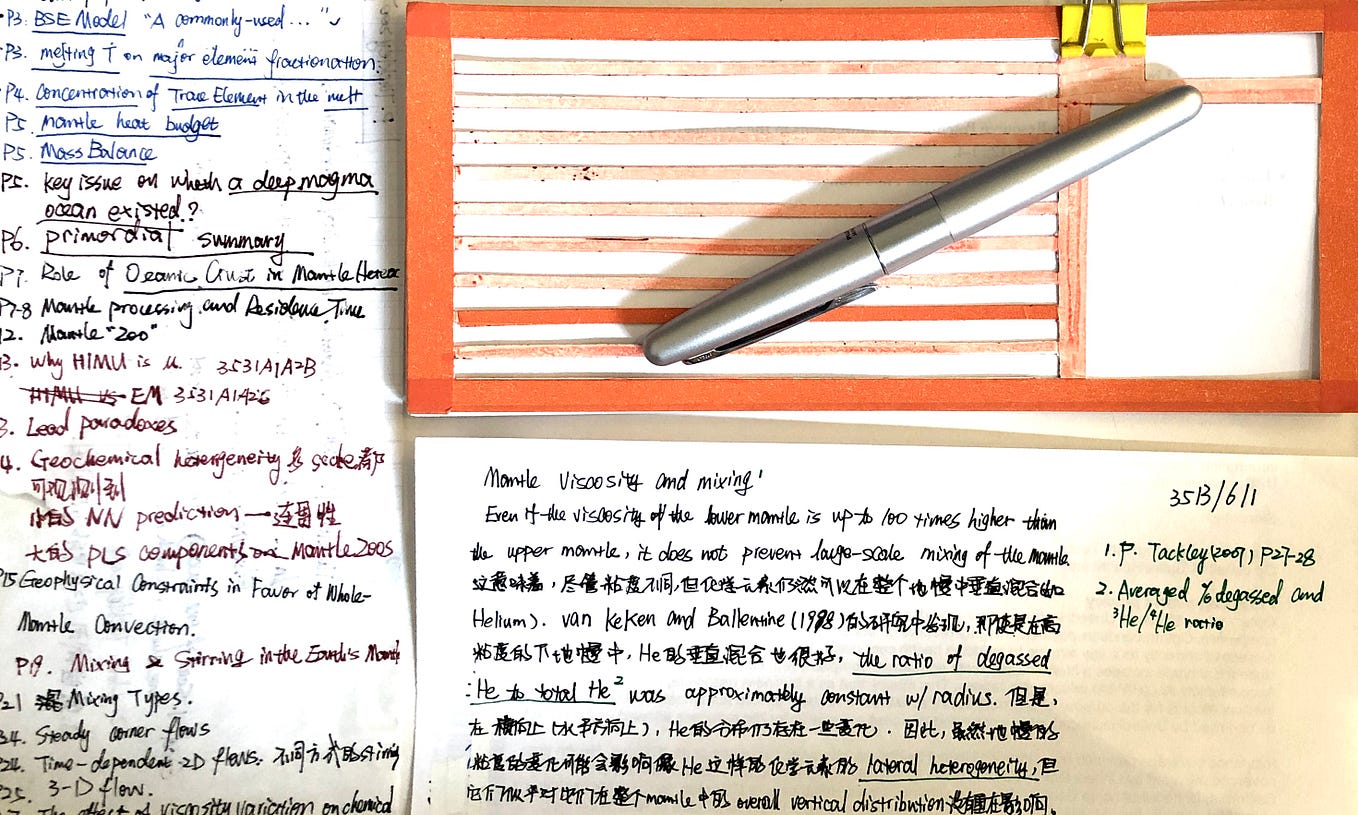 P3. BSE Model "A commonly-used ..."
P3. melting T on major element fractionation
P4. Concentration of Trace Element in the melt
P5 Mantle heat budget
P5. Mass Balance
P5. key issue on whether a deep magma
ocean existed?
P6. primordial summary
P7. Role of Oceanic Crust in Mantle
P7-8 Mantle processing and Residence Time
12. Mantle "Zoo"
13. Why HIMU is μ. 3531A1A2B
HIMU vs EM 3531A1A2
3. Lead paradoxes
4. Geochemical heterogeneity 多 scale 都
可观测到
小的 NN prediction — 连贯性
大的 PLS components Mantle Zoos
P15 Geophysical Constraints in Favor of Whole-
Mantle Convection.
P19. Mixing & Stirring in the Earth's Mantle
P21 Mixing Types.
24. Steady corner flows
P24. Time-dependent 2D flows. 不同方式的stirring
P25. 3-D flow.
The effect of viscosity variation on chemical
Mantle Viscosity and mixing
3513/6/1
Even if the viscosity of the lower mantle is up to 100 times higher than
the upper mantle, it does not prevent large-scale mixing of the mantle
这意味着,尽管粘度不同,但化学元素仍然可以在整个地幔中垂直混合(如
Helium). van Keken and Ballentine (1998)的研究中发现,即使是在高
粘度的下地幔中,He的垂直混合也很好, the ratio of degassed
He to total He² was approximately constant w/ radius. 但是,
在横向上(水平方向上),He的分布仍存在一些变化. 因此,虽然地幔的
粘度的变化可能会影响像He这样的化学元素的 lateral heterogeneity,但
它们似乎对它们在整个mantle中的 overall vertical distribution 没有影响.
1. P. Tackley(2007) P27-28
2. Averaged % degassed and
³He/⁴He ratio